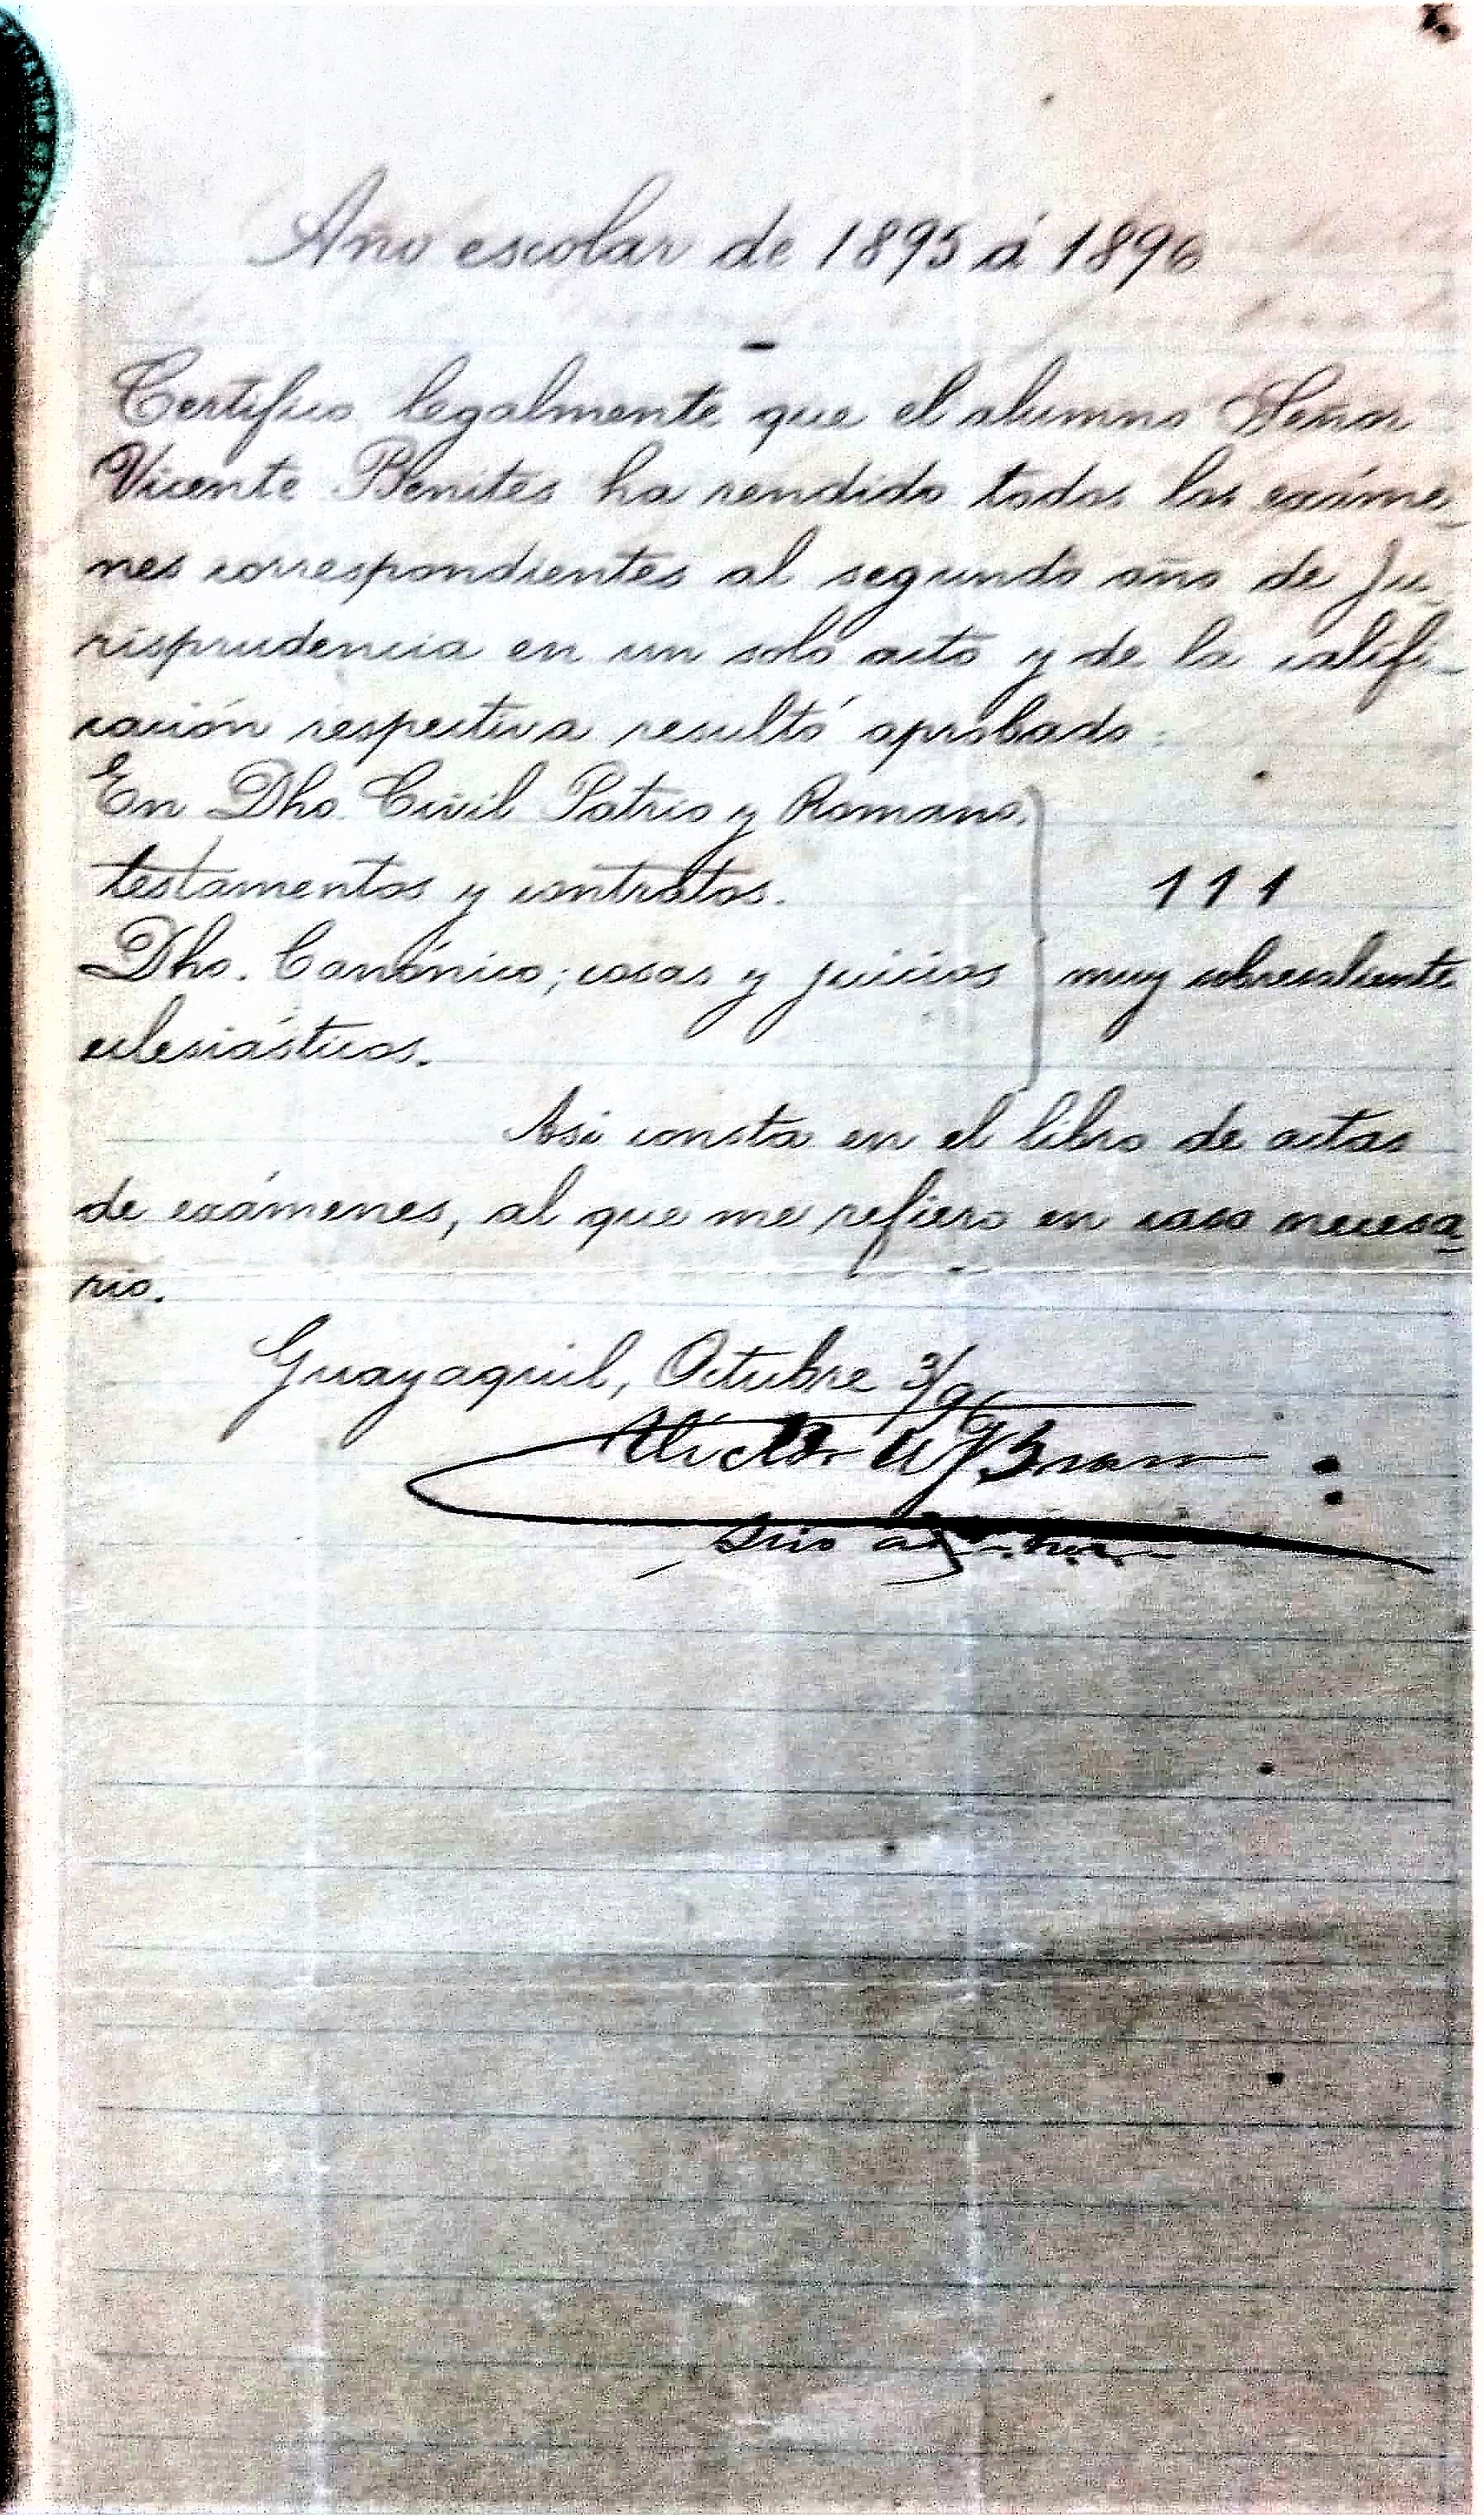 Año escolar de 1895 á 1896
Certifico legalmente que el alumno Señor
Vicente Benites ha rendido todos los exáme-
nes correspondientes al segundo año de Ju-
risprudencia en un solo acto y de la califi-
cación respectiva resultó aprobado:
En Dho. Civil Patrio y Romano,
testamentos y contratos. 111
Dho. Canónico; cosas y juicios muy sobresaliente
eclesiásticos.
Asi consta en el libro de actas
de exámenes, al que me refiero en caso necesa-
rio.
Guayaquil, Octubre 3/96
Victor
Srio